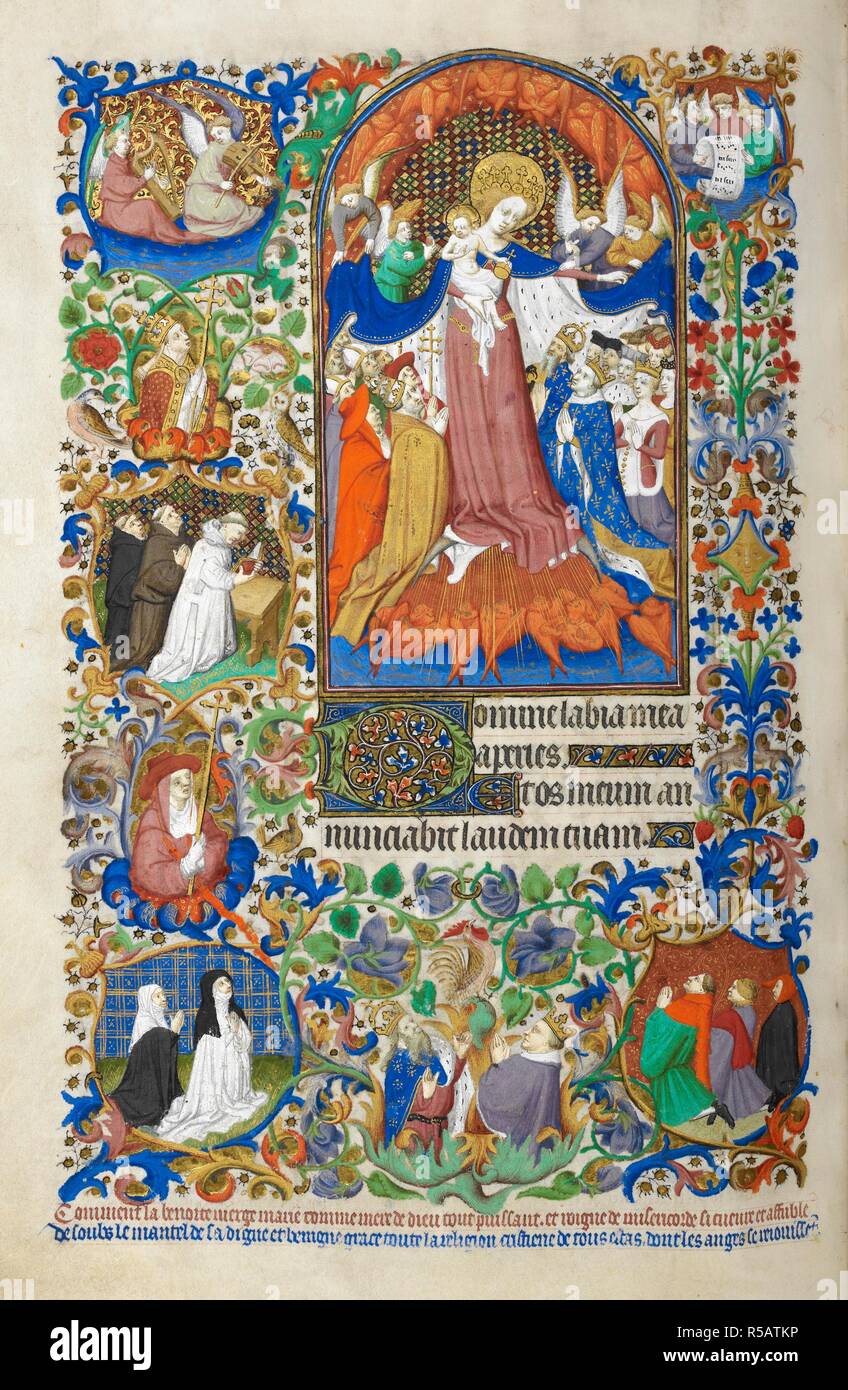 Domine labia mea
aperies,
Et os meum an
nunciabit laudem tuam.
Comment la benoite vierge marie comme mere de dieu tout puissant. et roigne de misericorde si cueure et affuble
de soubz le mantel de sa digne et benigne grace toute la religion cristiene de tous estas, dont les anges se reioissent
alamy
Image ID: R5ATKP
www.alamy.com